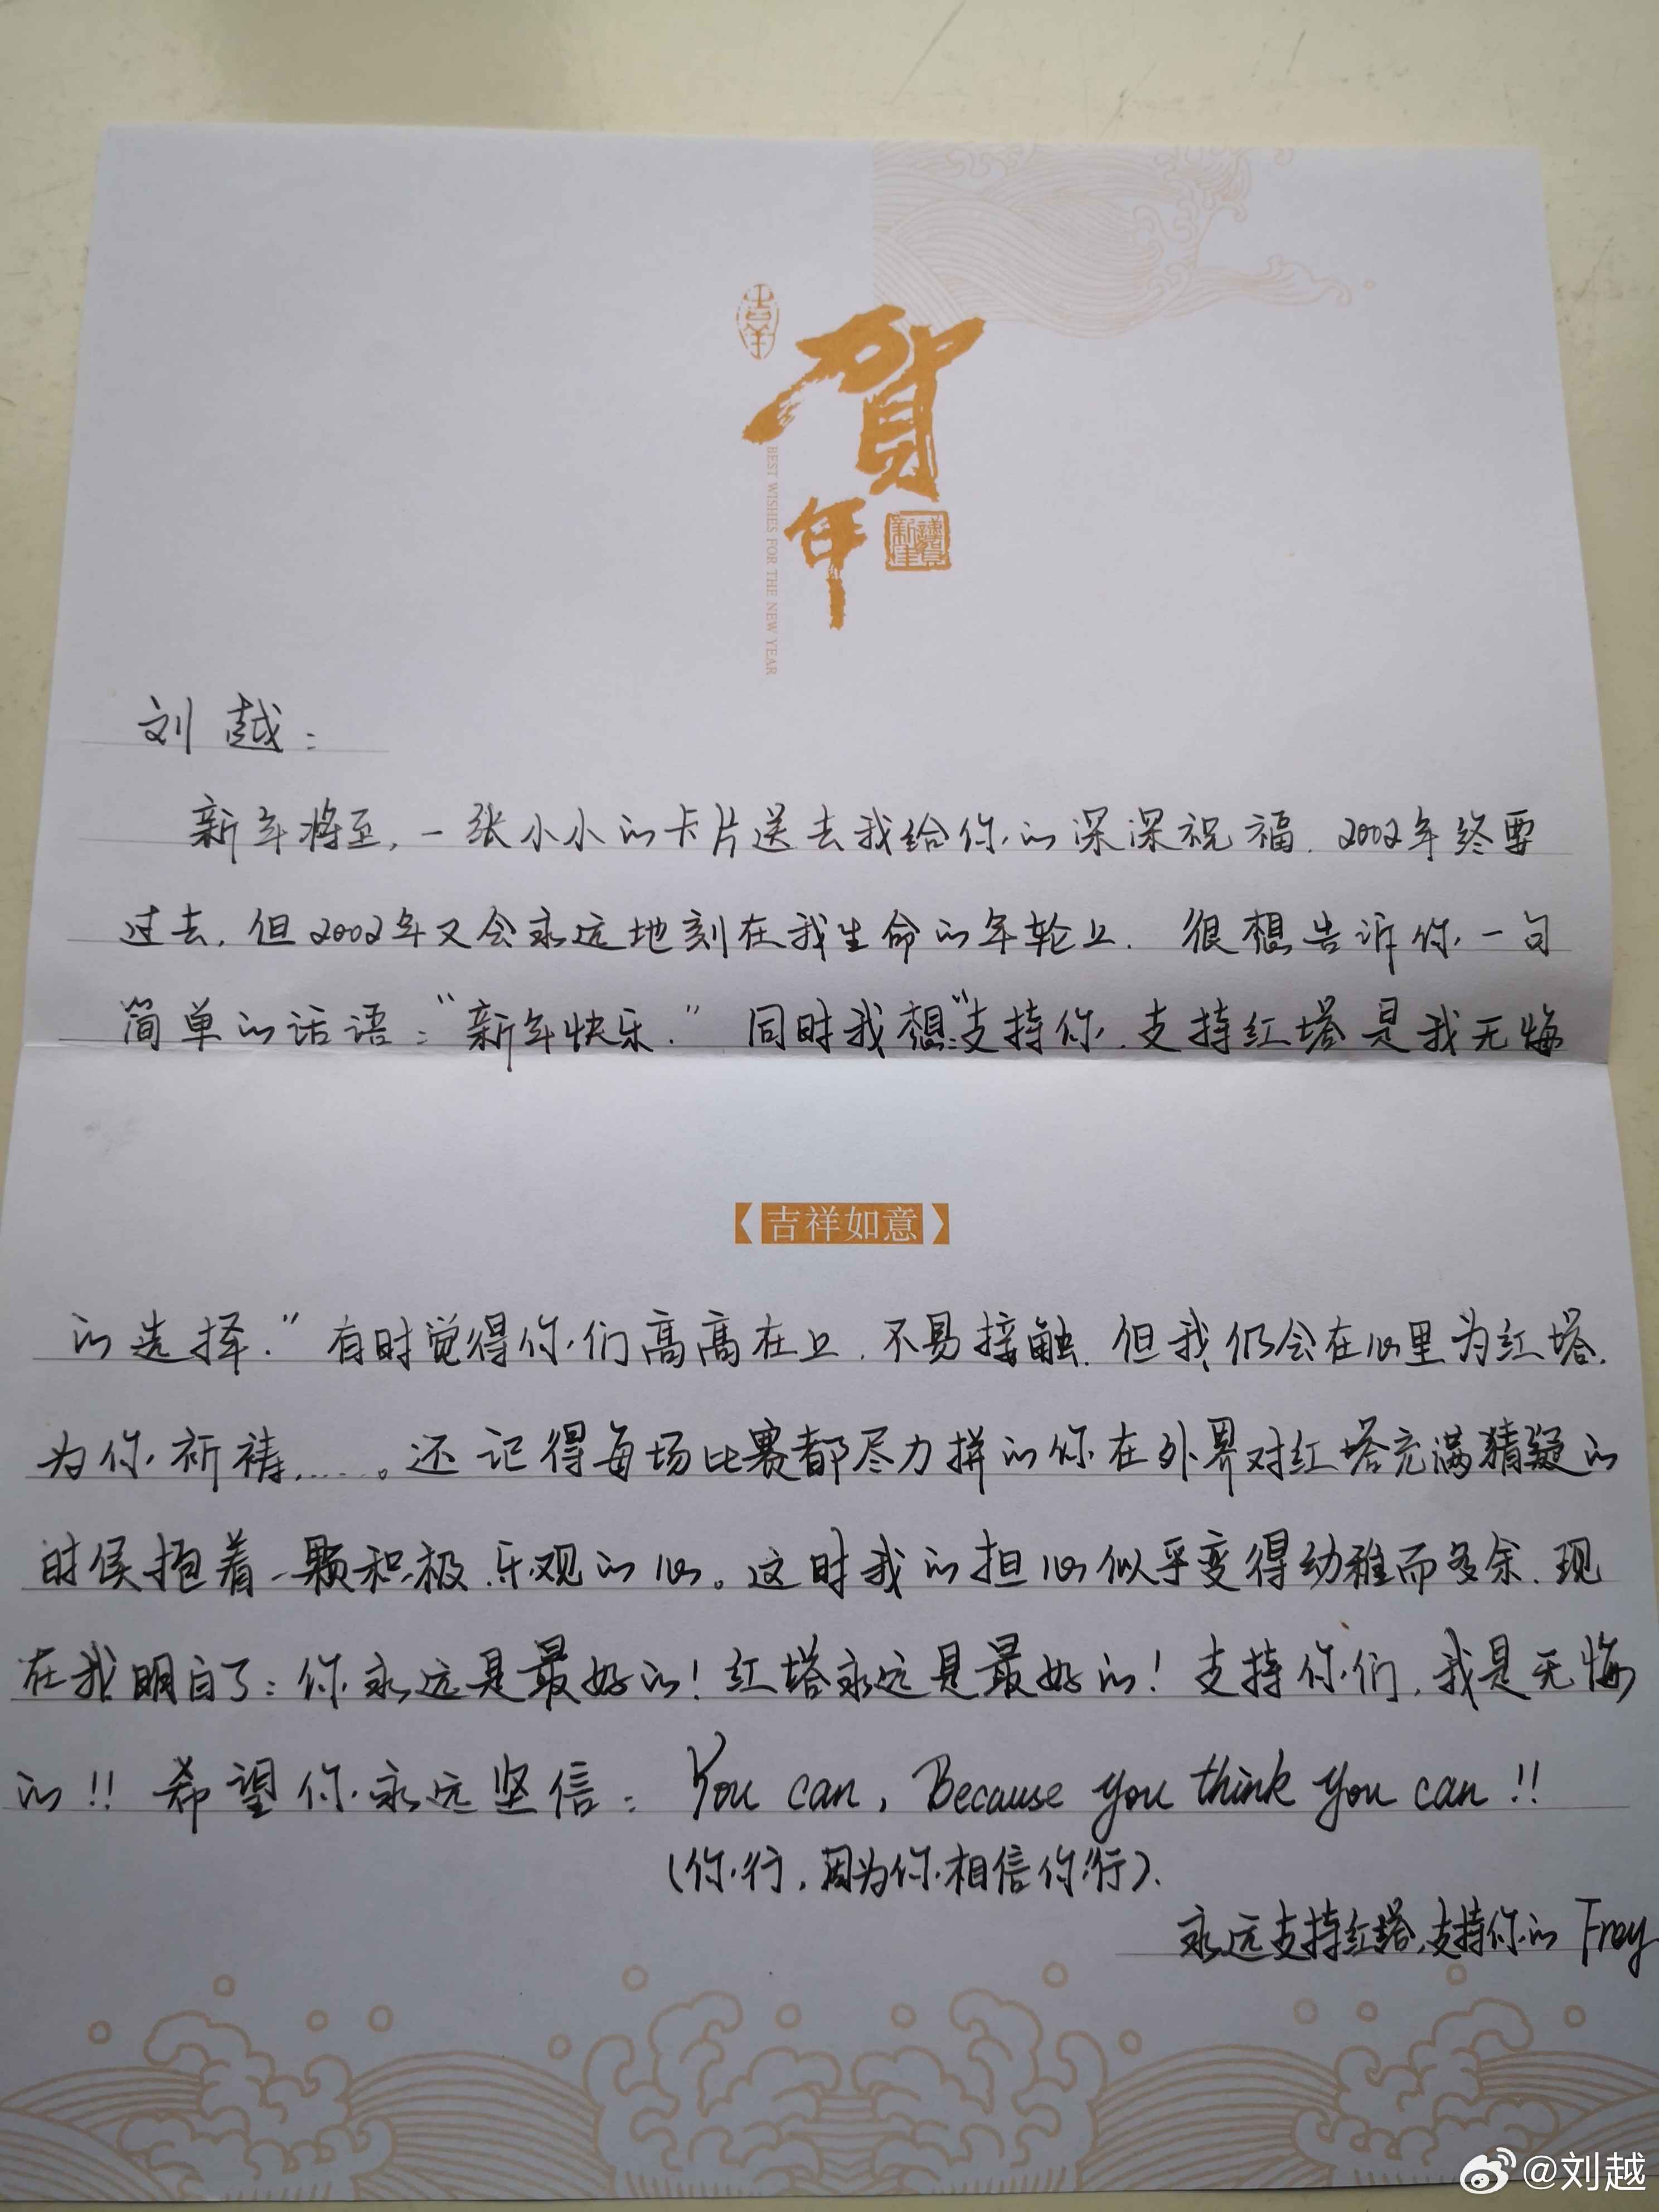 吉祥
贺
年
谨贺
新年
BEST WISHES FOR THE NEW YEAR
刘越：
新年将至，一张小小的卡片送去我给你的深深祝福．2002年终要
过去，但2002年又会永远地刻在我生命的年轮上．很想告诉你一句
简单的话语：“新年快乐．”同时我想：“支持你，支持红塔是我无悔
【吉祥如意】
的选择．”有时觉得你们高高在上，不易接触．但我仍会在心里为红塔，
为你祈祷……。还记得每场比赛都尽力拼的你在外界对红塔充满猜疑的
时侯抱着一颗积极、乐观的心。这时我的担心似乎变得幼稚而多余．现
在我明白了：你永远是最好的！红塔永远是最好的！支持你们，我是无悔
的!! 希望你永远坚信：You can, Because you think you can!!
（你行，因为你相信你行）．
永远支持红塔，支持你的 Frey
@刘越